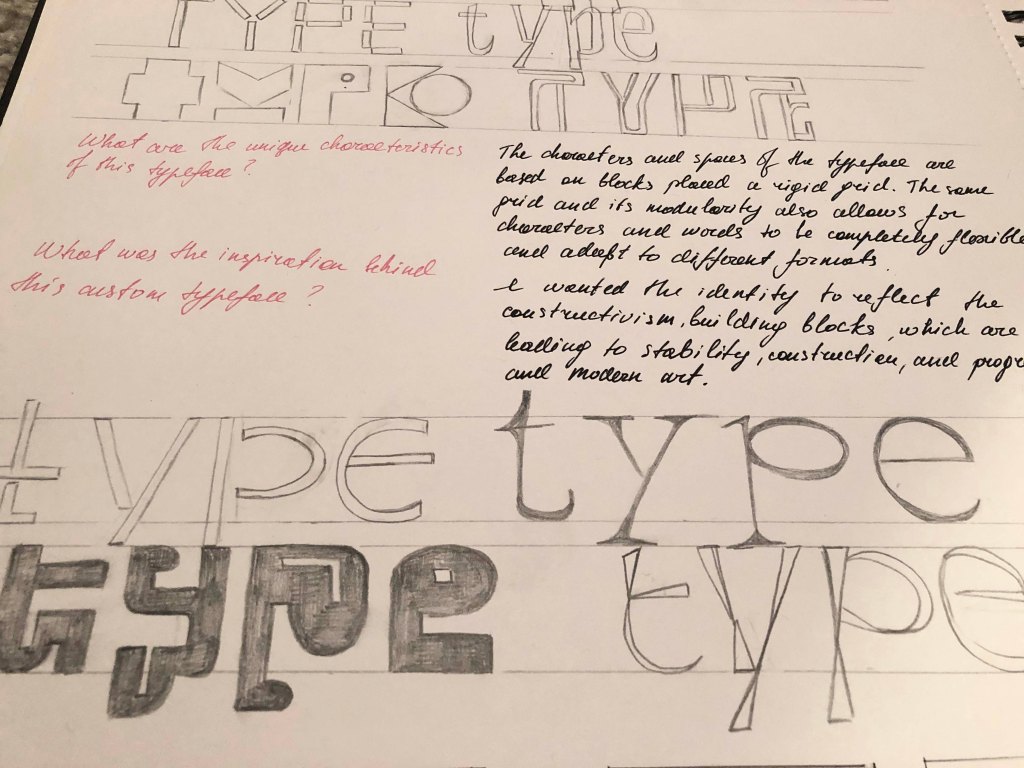 TYPE type
TYPE TYPE
What are the unique characteristics
of this typeface?
What was the inspiration behind
this custom typeface?
The characters and spaces of the typeface are
based on blocks placed a rigid grid. The same
grid and its modularity also allows for
characters and words to be completely flexible
and adapt to different formats.
I wanted the identity to reflect the
constructivism, building blocks, which are
leading to stability, construction, and progr
and modern art.
type type
type type